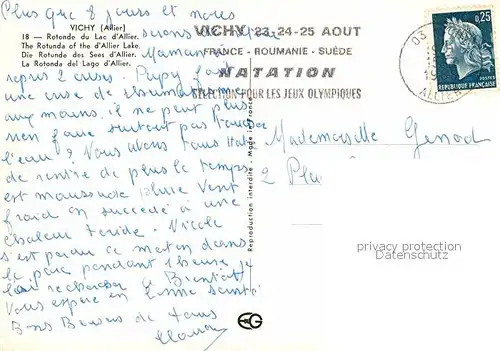 Plus que 8 jours et nous
serons
VICHY (Allier)
18 — Rotonde du Lac d'Allier.
The Rotunda of the d'Allier Lake.
Die Rotunde des Sees d'Allier.
La Rotonda del Lago d'Allier.
Maman
repris 2 crises. Papy fait
une crise de rhumatisme
aux mains. il ne peut plus
rien faire surtout pas toucher
l'eau ? Nous avons tous hâte
de rentrer de plus le temps
est maussade pluie vent
froid on succédé à une
chaleur torride. Nicole
s'est perdue ce matin dans
le parc pendant 1 heure
rechercher à Bientôt
Vous espère en bonne santé
Bons Baisers de tous
Reproduction interdite - Made in France
VICHY 23-24-25 AOUT
FRANCE - ROUMANIE - SUÈDE
NATATION
SÉLECTION POUR LES JEUX OLYMPIQUES
03
19
ALLIER
0,25
POSTES
REPUBLIQUE FRANÇAISE
Mademoiselle Genod
2 Pla
privacy protection
Datenschutz
EG